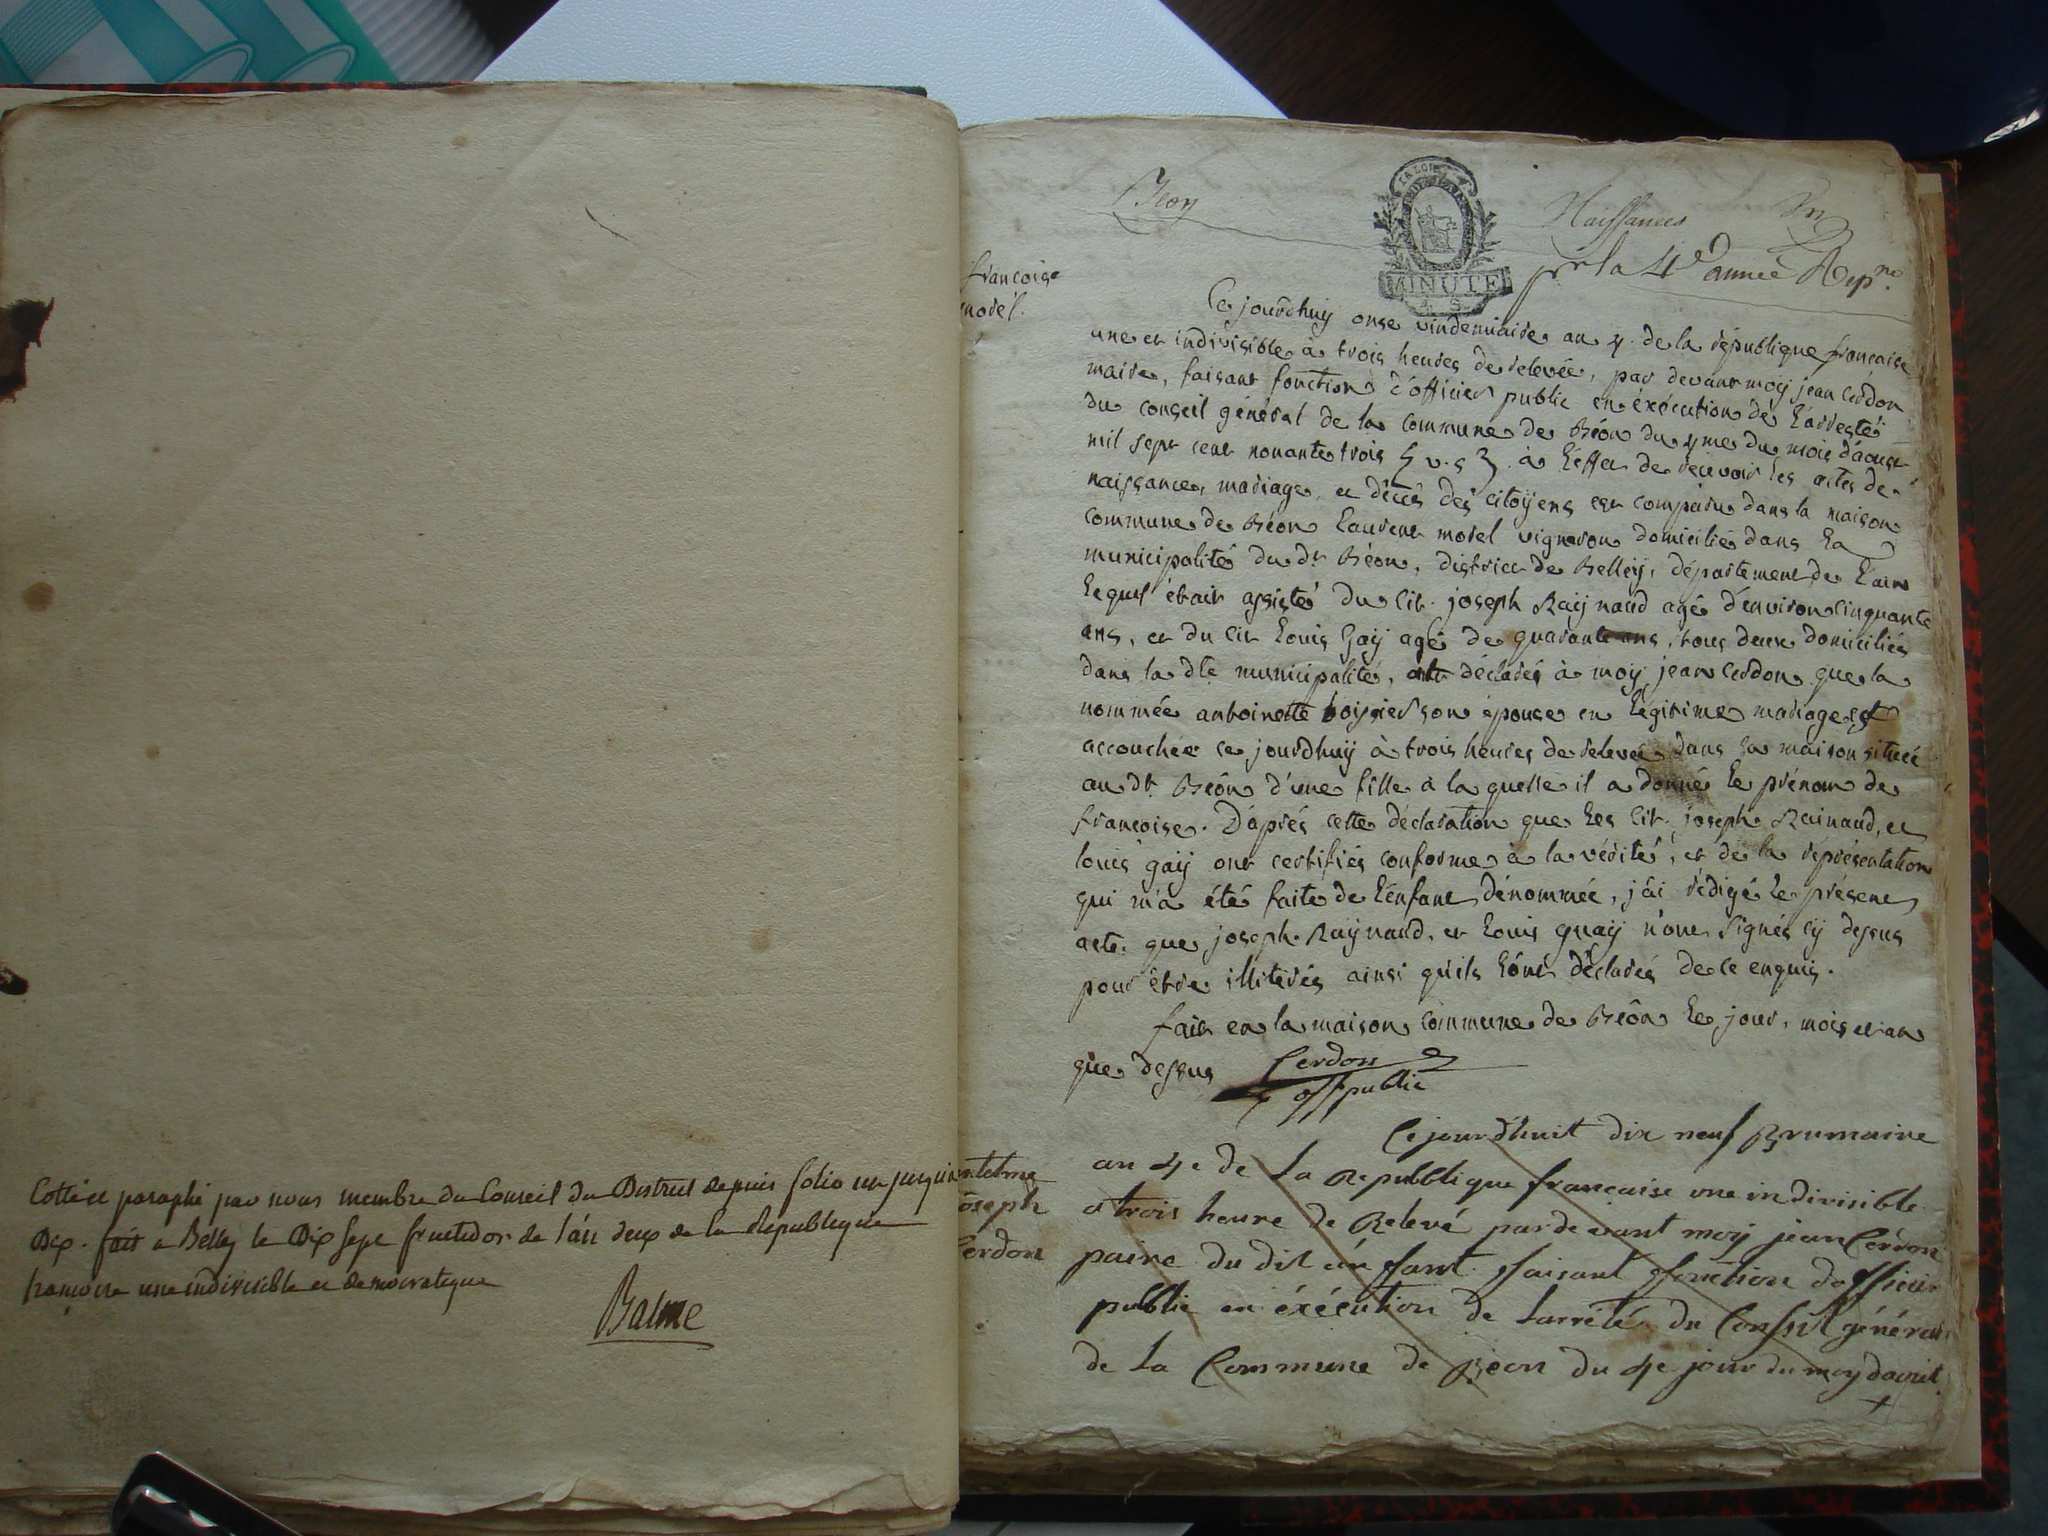 Cotté et paraphé par nous membre du Conseil du District depuis folio un jusqu'à
Dix. fait a Belley le Dix sept fructidor de l'an deux de la Republique
françoise une indivisible et democratique
Balme
Béon
LA LOI
MINUTE
Naissances
pr la 4e année Repne
françoise
morel
Ce jourdhuy onse vindemiaire an 4. de la république francaise
une et indivisible à trois heures de relevée, par devant moy jean Cerdon
maire, faisant fonctions d'officier public en éxécution de l'arresté
du conseil général de la commune de Béon du 4me du mois d'aoust
mil sept cent nonante trois v. s à l'effet de recevoir les actes de
naissance, mariage, et décès des citoyens est comparu dans la maison
commune de Béon laurent morel vigneron domicilié dans la
municipalité du dt Béon, district de Belley, département de l'ain
lequel était assisté du cit. joseph Raynaud agé d'environ cinquante
ans, et du cit louis Gay agé de quarante ans, tous deux domiciliés
dans la dte municipalité, déclarés à moy jean Cerdon que la
nommée antoinette boissier son épouse en légitime mariage est
accouchée ce jourdhuy à trois heures de relevée dans sa maison située
au dt. Béon d'une fille à la quelle il a donné le prénom de
francoise. D'aprés cette déclaration que les cit. joseph Rainaud, et
louis gay ont certifiés conforme à la vérité, et de la représentation
qui m'a été faite de l'énfant dénommée, j'ai rédigé le présent
acte. que joseph Raynaud, et louis guay n'ont signés cy dessus
pour être illiterés ainsi qu'ils l'ont déclarés de ce enquis.
fait en la maison commune de Béon le jour, mois et an
que dessus Cerdon
off public
antelme
joseph
Cerdon
Ce jourd'huit dix neuf Brumaire
an 4e de La Republlique francaise une indivisible
a trois heure de Relevé par de vant moy jean Cerdon
paire du dit én ffant ffaisant ffonction dofficier
public en éxécution de Larrêté du Conseil général
de La Commune de Béon du 4e jour du moy daout